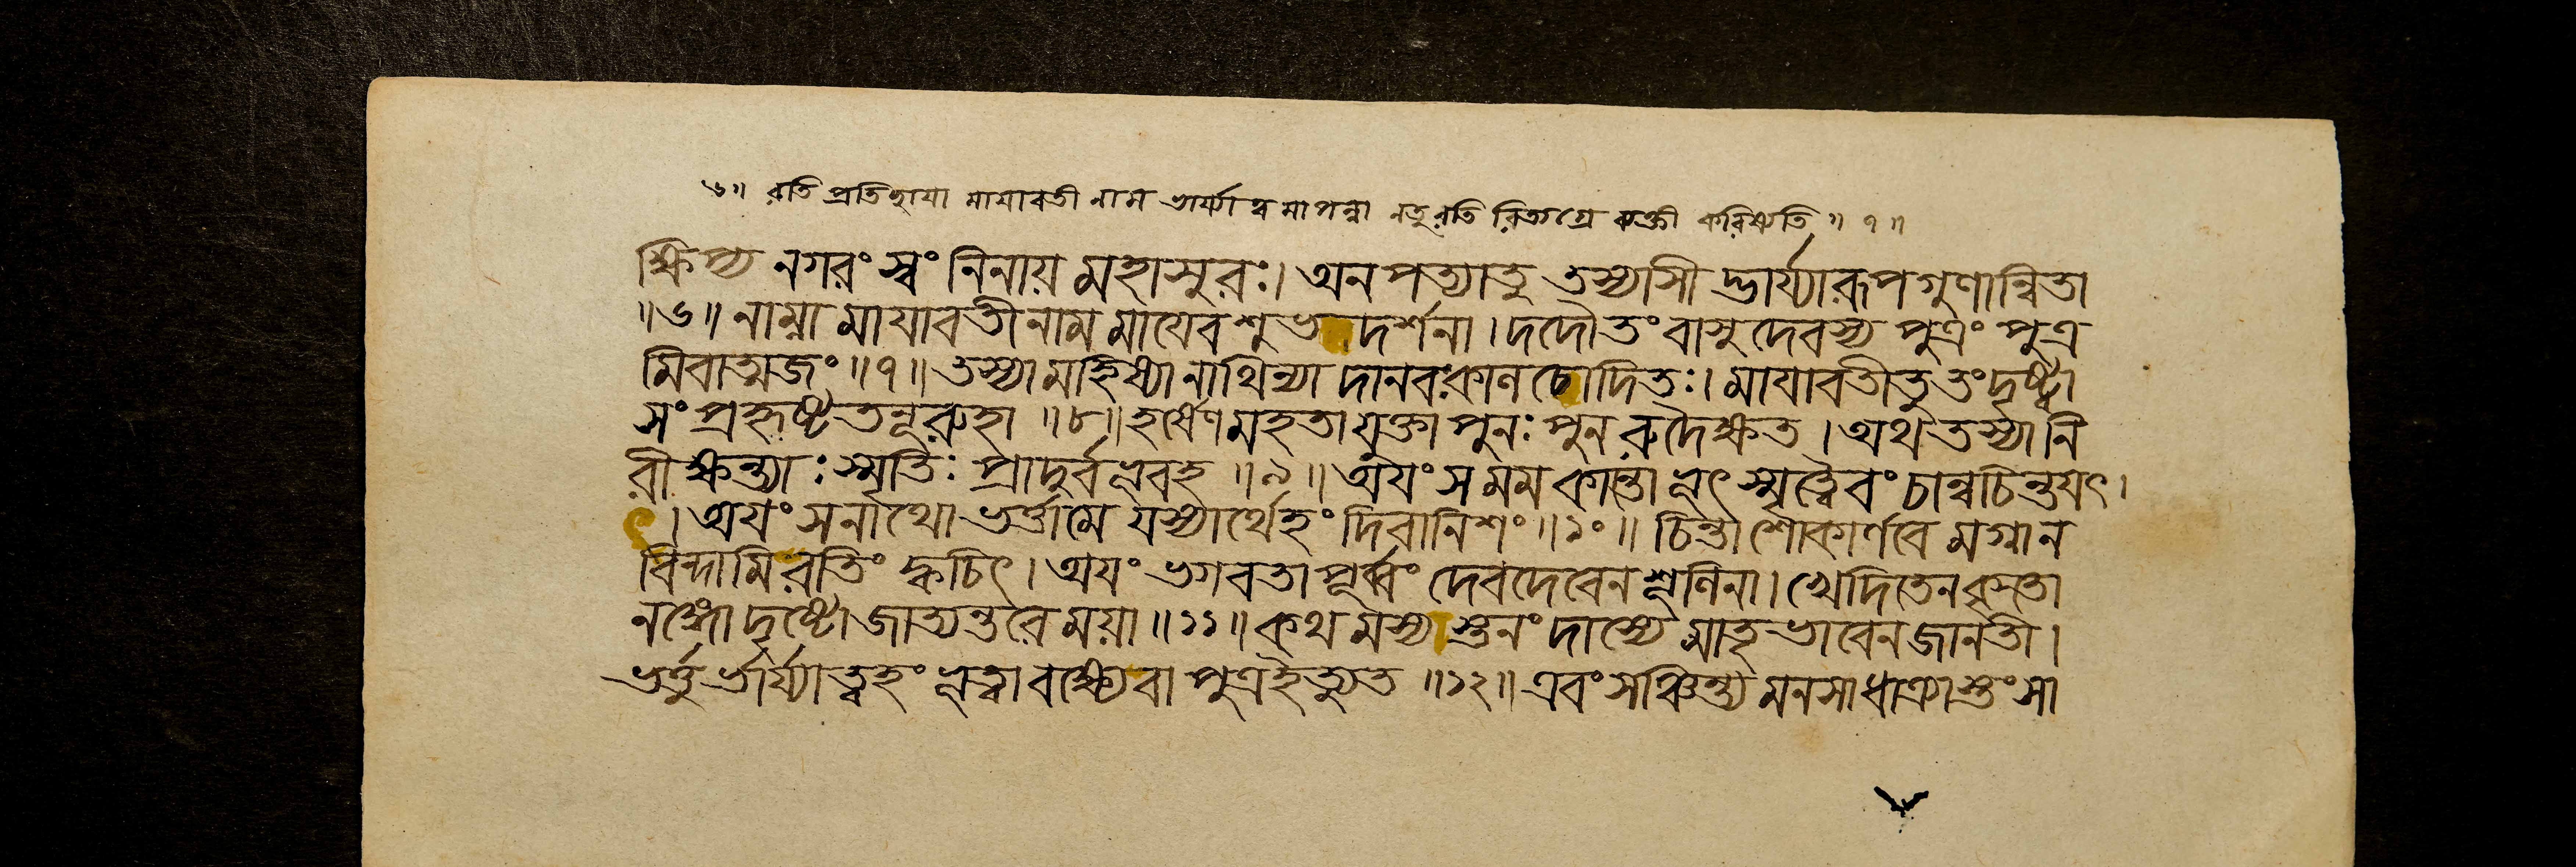 ৬॥ রতি প্রতিচ্ছায়া মায়াবতী নাম ভার্য্যাত্বমাপন্না নতু রতিরিত্যগ্রে ব্যক্তী করিষ্যতি ॥ ৭ ॥
ক্ষিপ্য নগরং স্বং নিনায় মহাসুরঃ। অনপত্যাতু তস্যাসীদ্ভার্য্যারূপগুণান্বিতা
॥৬॥ নাম্না মাযাবতীনাম মাযেব শুভদর্শনা। দদৌতং বাসুদেবস্য পুত্রং পুত্র
মিবাত্মজং ॥৭॥ তস্যা মহিষ্যা নাথিন্যা দানবঃ কালচোদিতঃ। মাযাবতীতু তং দৃষ্ট্বা
সংপ্রহৃষ্টতনূরুহা ॥৮॥ হর্ষেণ মহতা যুক্তা পুনঃ পুনরুদৈক্ষত। অথ তস্যা নি
রীক্ষন্ত্যাঃ স্মৃতিঃ প্রাদুর্বভূবহ ॥৯॥ অযং স মম কান্তোভূৎ স্মৃত্বৈবং চান্বচিন্তযৎ।
। অযং সনাথো ভর্ত্তামে যস্যার্থেহং দিবানিশং ॥১০॥ চিন্তাশোকার্ণবে মগ্নান
বিন্দামি রতিং ক্বচিৎ। অযং ভগবতা পূর্ব্বং দেবদেবেন শূলিনা। খেদিতেন কৃতো
নঙ্গো দৃষ্টো জাত্যন্তরে ময়া ॥১১॥ কথমস্য স্তনং দাস্যে মাতৃভাবেন জানতী।
ভর্ত্তুর্ভার্য্যাত্বহং ভূত্বা বক্ষ্যেবা পুত্রইত্যুত ॥১২॥ এবং সঞ্চিন্ত্য মনসা ধাত্র্যাস্তং সা